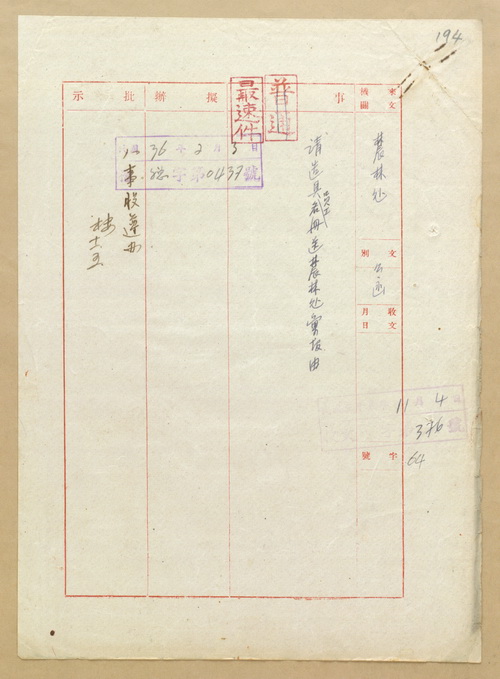 194
來文機關
農林处
文別
公函
收文
月日
字號
64
11 4
376 號
事
普通
最速件
請造具員工名冊送農林处彙报由
擬辦
36年2月5日
字第0437號
批示